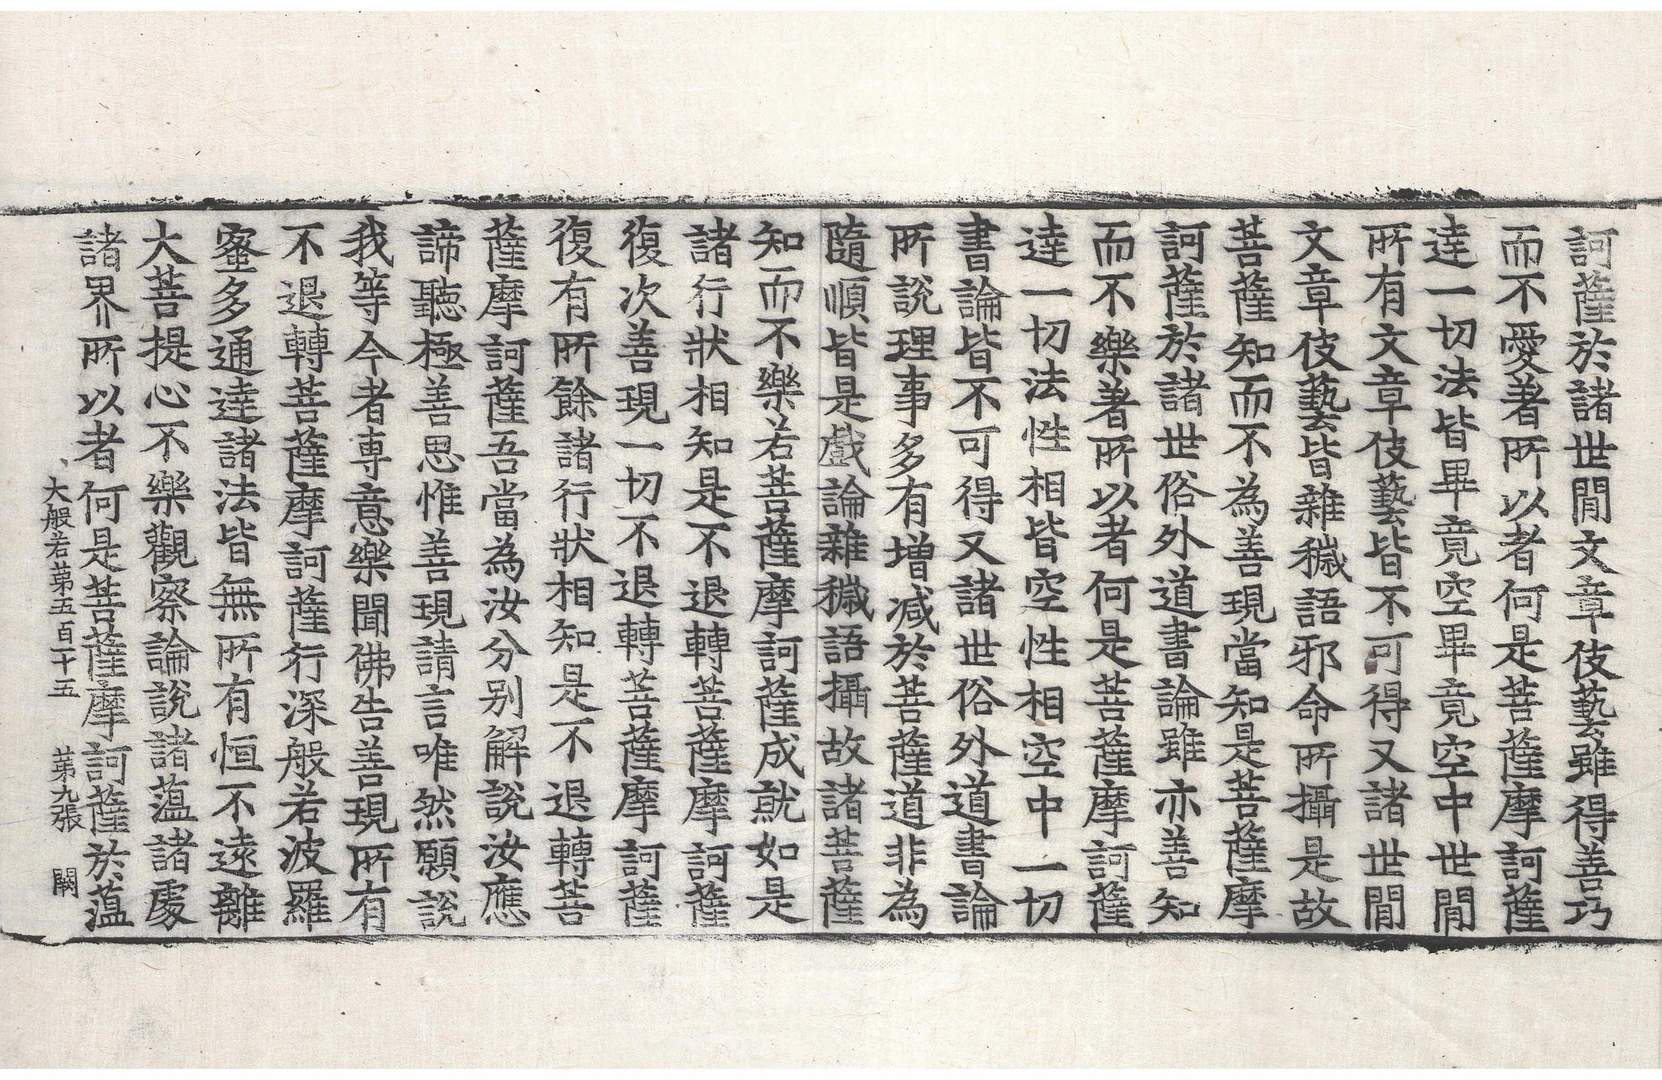 訶薩於諸世閒文章伎藝雖得善巧
而不愛著所以者何是菩薩摩訶薩
達一切法皆畢竟空畢竟空中世閒
所有文章伎藝皆不可得又諸世閒
文章伎藝皆雜穢語邪命所攝是故
菩薩知而不為善現當知是菩薩摩
訶薩於諸世俗外道書論雖亦善知
而不樂著所以者何是菩薩摩訶薩
達一切法性相皆空性相空中一切
書論皆不可得又諸世俗外道書論
所說理事多有增減於菩薩道非為
隨順皆是戲論雜穢語攝故諸菩薩
知而不樂若菩薩摩訶薩成就如是
諸行狀相知是不退轉菩薩摩訶薩
復次善現一切不退轉菩薩摩訶薩
復有所餘諸行狀相知是不退轉菩
薩摩訶薩吾當為汝分別解說汝應
諦聽極善思惟善現請言唯然願說
我等今者專意樂聞佛告善現所有
不退轉菩薩摩訶薩行深般若波羅
蜜多通達諸法皆無所有恒不遠離
大菩提心不樂觀察論說諸薀諸處
諸界所以者何是菩薩摩訶薩於薀
大般若第五百十五 第九張 闕